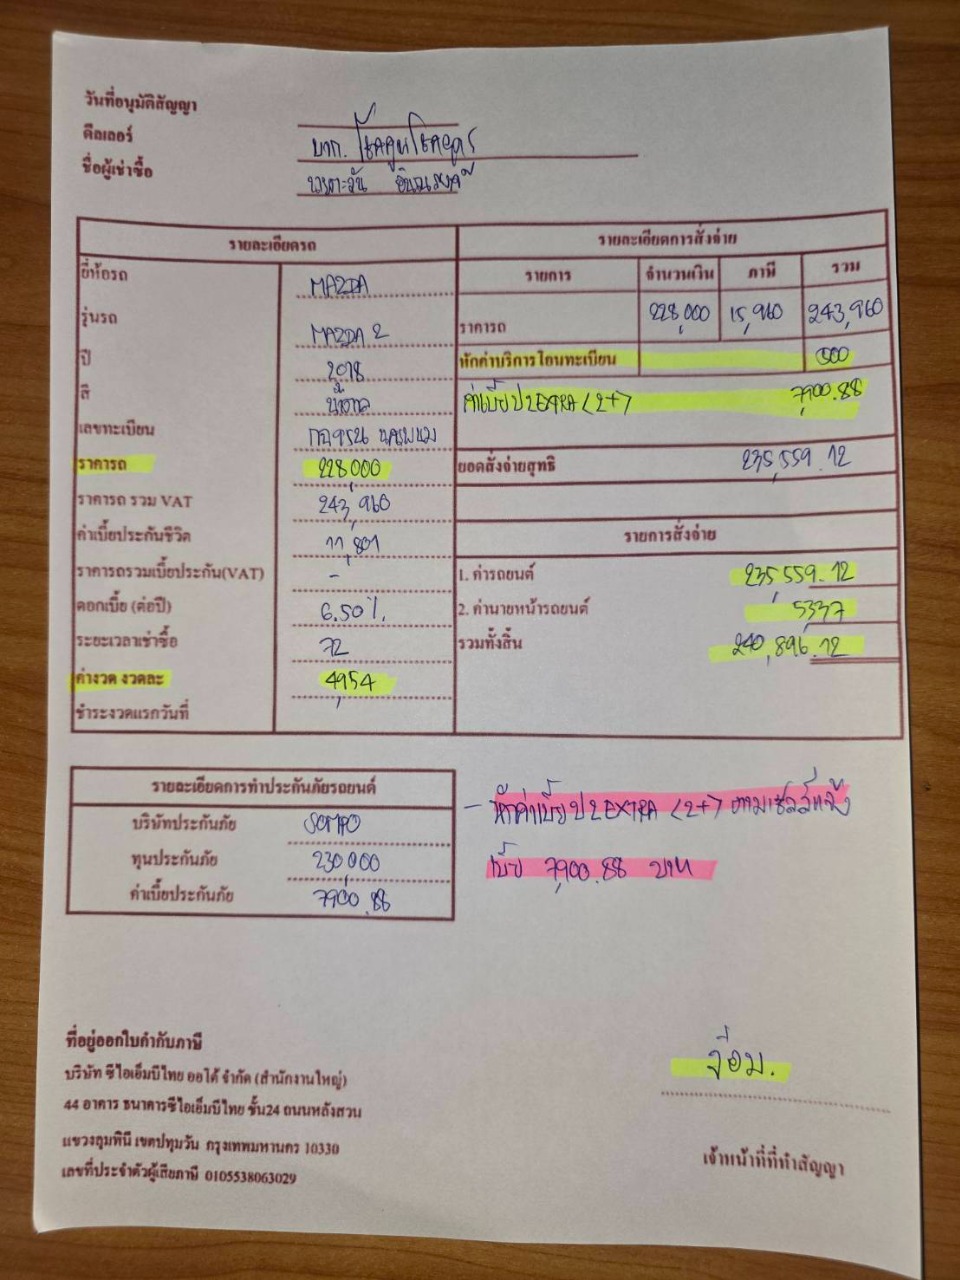 วันที่อนุมัติสัญญา
ดีลเลอร์ บจก. โชคคูณโชคอุดร
ชื่อผู้เช่าซื้อ
รายละเอียดรถ
ยี่ห้อรถ MAZDA
รุ่นรถ MAZDA 2
ปี 2018
สี น้ำตาล
เลขทะเบียน
ราคารถ 228,000
ราคารถ รวม VAT 243,960
ค่าเบี้ยประกันชีวิต 11,801
ราคารถรวมเบี้ยประกัน(VAT) -
ดอกเบี้ย (ต่อปี) 6.50%
ระยะเวลาเช่าซื้อ 72
ค่างวด งวดละ 4,954
ชำระงวดแรกวันที่
รายละเอียดการสั่งจ่าย
รายการ จำนวนเงิน ภาษี รวม
ราคารถ 228,000 15,960 243,960
หักค่าบริการโอนทะเบียน 500
ค่าเบี้ย ป2 EXTRA (2+) 7,900.88
ยอดสั่งจ่ายสุทธิ 235,559.12
รายการสั่งจ่าย
1. ค่ารถยนต์ 235,559.12
2. ค่านายหน้ารถยนต์ 5,337
รวมทั้งสิ้น 240,896.12
รายละเอียดการทำประกันภัยรถยนต์
บริษัทประกันภัย SOMPO
ทุนประกันภัย 230,000
ค่าเบี้ยประกันภัย 7,900.88
- หักค่าเบี้ย ป2 EXTRA (2+) ตามเซลล์แจ้ง
เบี้ย 7,900.88 บาท
ที่อยู่ออกใบกำกับภาษี
บริษัท ซีไอเอ็มบีไทย ออโต้ จำกัด (สำนักงานใหญ่)
44 อาคาร ธนาคารซีไอเอ็มบีไทย ชั้น24 ถนนหลังสวน
แขวงลุมพินี เขตปทุมวัน กรุงเทพมหานคร 10330
เลขที่ประจำตัวผู้เสียภาษี 0105538063029
จ๋อม.
เจ้าหน้าที่ที่ทำสัญญา